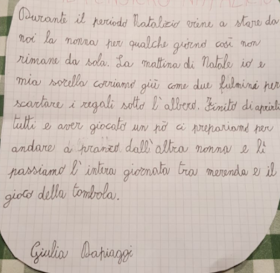 Durante il periodo Natalizio viene a stare da
noi la nonna per qualche giorno così non
rimane da sola. La mattina di Natale io e
mia sorella corriamo giù come due fulmini per
scartare i regali sotto l'albero. Finito di aprirli
tutti e aver giocato un pò ci prepariamo per
andare a pranzo dall'altra nonna e lì
passiamo l'intera giornata tra merenda e il
gioco della tombola.
Giulia Dapiaggi